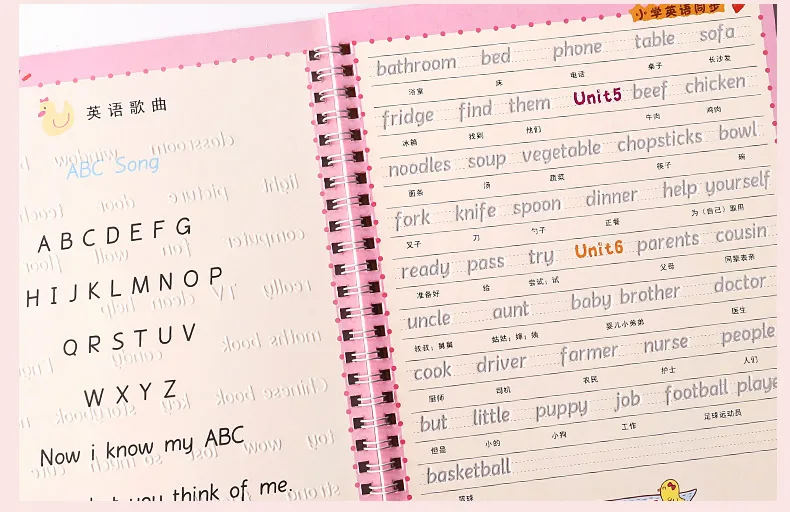 英语歌曲
ABC Song
A B C D E F G
H I J K L M N O P
Q R S T U V
W X Y Z
Now i know my ABC
you think of me.
小学英语同步
bathroom bed phone table sofa
浴室 床 电话 桌子 长沙发
fridge find them Unit5 beef chicken
冰箱 找到 他们 牛肉 鸡肉
noodles soup vegetable chopsticks bowl
面条 汤 蔬菜 筷子 碗
fork knife spoon dinner help yourself
叉子 刀 勺子 正餐 为（自己）取用
ready pass try Unit6 parents cousin
准备好 给 尝试；试 父母 同辈表亲
uncle aunt baby brother doctor
叔叔；舅舅 姑姑；婶；姨 婴儿小弟弟 医生
cook driver farmer nurse people
厨师 司机 农民 护士 人们
but little puppy job football playe
但是 小的 小狗 工作 足球运动员
basketball
篮球